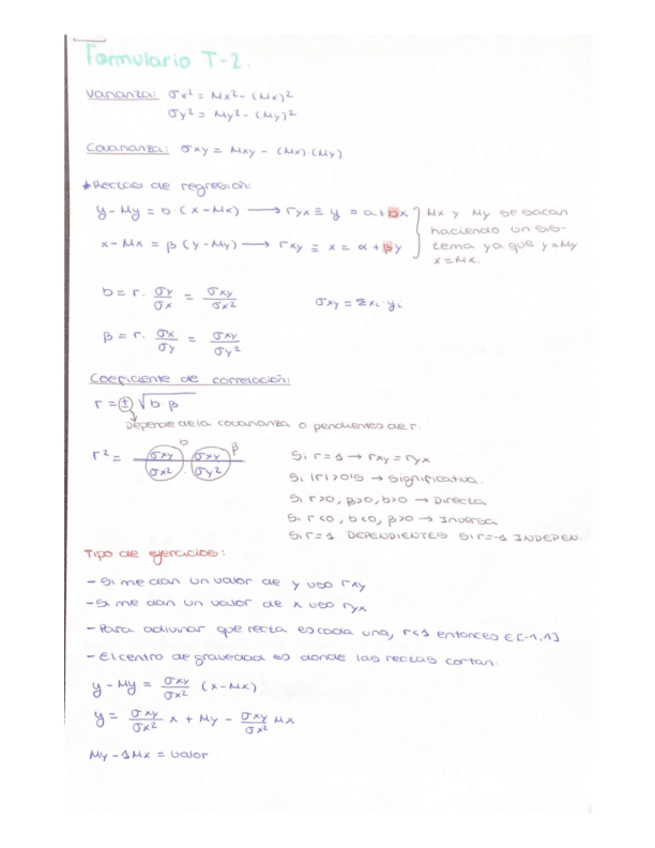 Formulario T-2.
Varianza: σx² = Mx² - (Mx)²
σy² = My² - (My)²
Covarianza: σxy = Mxy - (Mx)·(My)
*Rectas de regresión:
y - My = b (x - Mx) → ryx ≡ y = a + bx } Mx y My se sacan
haciendo un sis-
x - Mx = β (y - My) → rxy ≡ x = α + βy tema ya que y = My
x = Mx.
b = r · σy/σx = σxy/σx² σxy = Σxi·yi
β = r · σx/σy = σxy/σy²
Coeficiente de correlación:
r = ± √b·β
Depende de la covarianza o pendientes de r.
r² = σxy/σx² · σxy/σy² b β Si r = 1 → rxy = ryx
Si |r| > 0'5 → Significativa.
Si r > 0, β > 0, b > 0 → Directa
Si r < 0, b < 0, β > 0 → Inversa
Si r = 1 DEPENDIENTES Si r = -1 INDEPEN.
Tipo de ejercicios:
- Si me dan un valor de y uso rxy
- Si me dan un valor de x uso ryx
- Para adivinar que recta es cada una, r < 1 entonces ∈ [-1,1]
- El centro de gravedad es donde las rectas cortan.
y - My = σxy/σx² (x - Mx)
y = σxy/σx² x + My - σxy/σx² Mx
My - 1Mx = valor